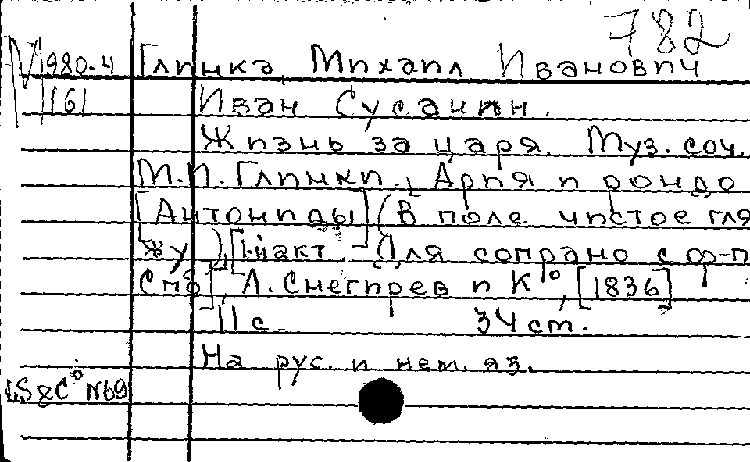 782
N 1980-4 Глинка, Михаил Иванович
161 Иван Сусанин.
Жизнь за царя. Муз. соч.
М.И. Глинки. Ария и рондо
[Антониды] (В поле чистое гля
жу), [1-й акт]. Для сопрано с ф-п
Спб], Л. Снегирев и К°, [1836]
11 с. 34 cm.
На рус. и нем. яз.
LS &C° N69